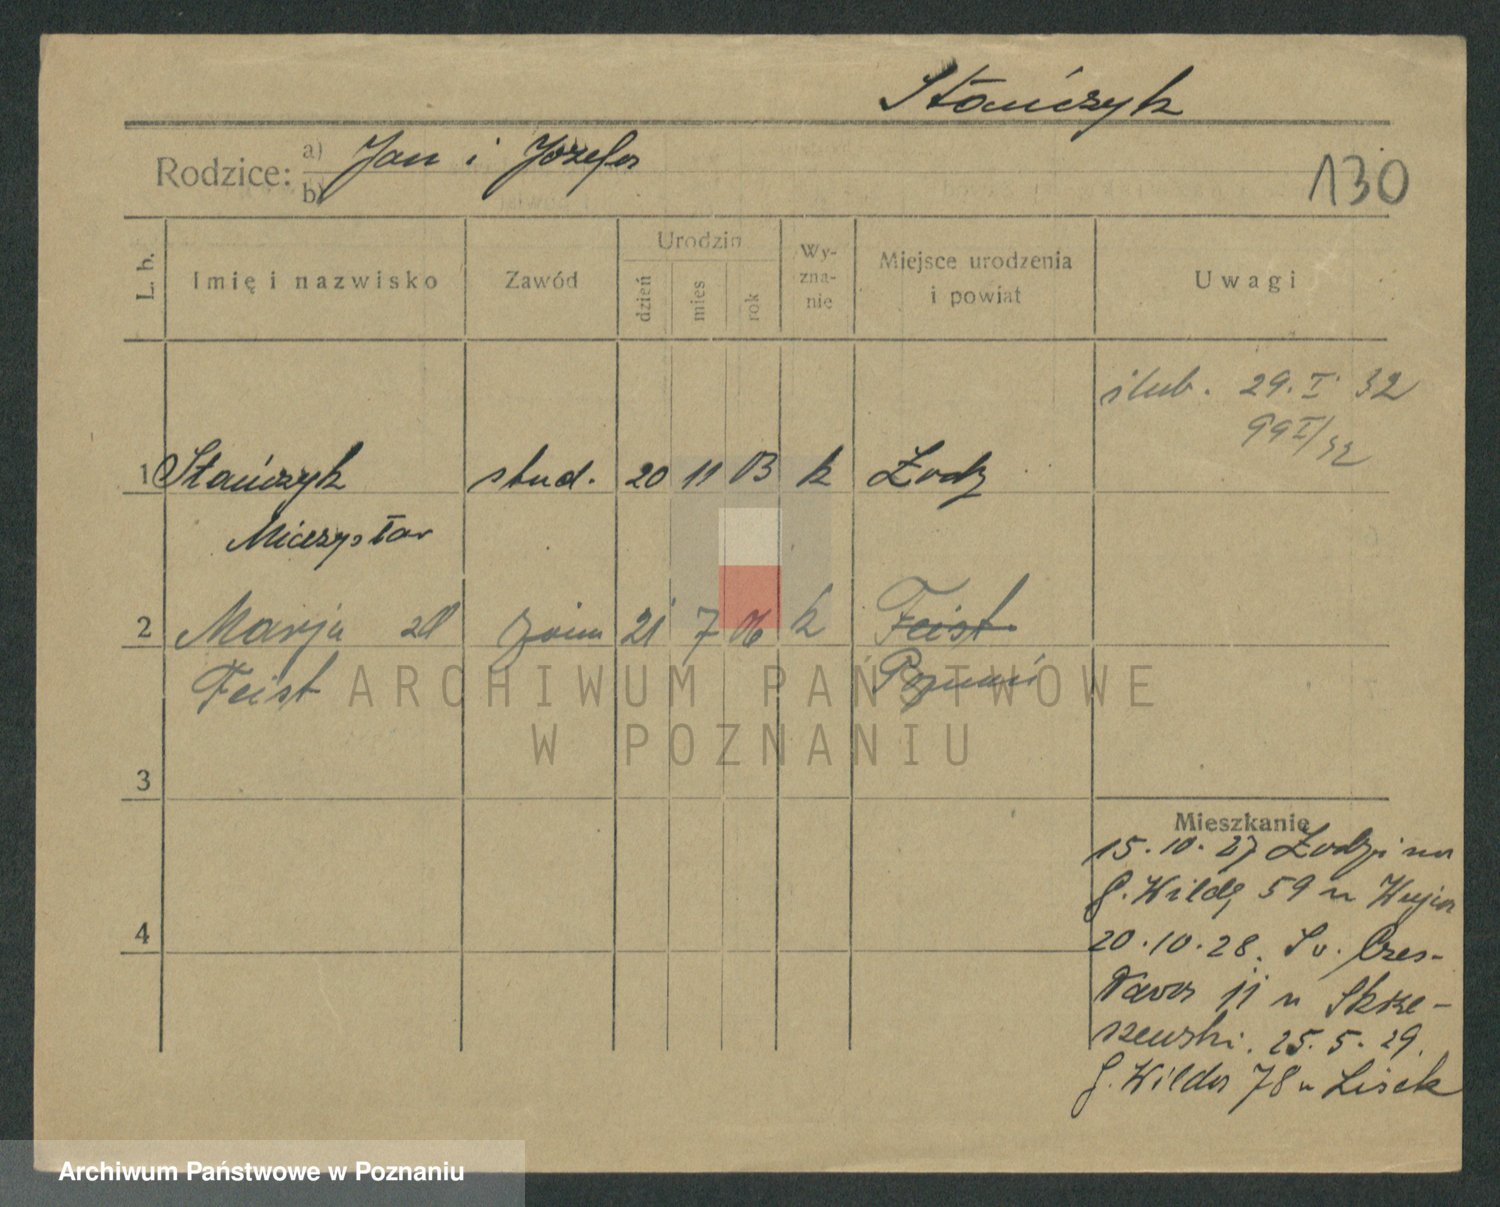 Stańczyk
Rodzice: a) Jan i Józefa
b)
130
L. b.
Imię i nazwisko
Zawód
Urodzin
dzień
mies
rok
Wy-
zna-
nie
Miejsce urodzenia
i powiat
Uwagi
ślub. 29. I 32
99 I/32
1 Stańczyk stud. 20 11 03 k Łodz
Mieczysław
2 Marja zd 21 7 06 k Feist
Feist Poznań
3
4
Mieszkanie
15. 10. 27 z Łodzi na
G. Wildę 59 u
20. 10. 28. Św. Czes-
ława 11 u Skrze-
szewski. 25. 5. 29.
G. Wilda 78 u Lisek
ARCHIWUM PAŃSTWOWE
W POZNANIU
Archiwum Państwowe w Poznaniu